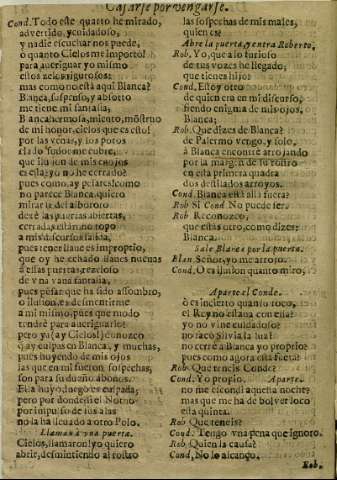 Casarse por vengarse.
Cond. Todo este quarto he mirado,
advertido, y cuidadoso,
y nadie escuchar nos puede,
ò quanto Cielos me importò
para aueriguar yo mismo
estos zelos rigurosos:
mas como no està aqui Blanca?
Blanca, suspenso, y absorto
me tiene mi fantasia,
Blanca hermosa, miento, mõstruo
de mi honor, cielos que es esto!
por las venas, y los poros
elado todos me cubre,
que ilusion de mis enojos
es esta? yo no he cerrado?
pues como, ay pesares! como
no parece Blanca, quiero
mirar si del alboroto
dexè las puertas abiertas,
cerradas estàn, no topo
a mis discursos salida,
pues tener llaue es improprio,
que oy he echado llaues nueuas
a estas puertas, rezeloso
de vna vana fantasia,
pues pensar que ha sido assombro,
ò ilusion, es desmentirme
a mi mismo, pues que modo
tendrè para aueriguarlo?
pero ya (ay Cielos!) conozco
q̃ ay culpas en Blanca, y muchas,
pues huyendo de mis ojos
las que en mi fueron sospechas,
son para su dueño abonos.
Ella huyò, luego es culpada;
pero por donde? si el Noto
por impulso de sus alas
no la ha lleuado a otro Polo.
Llaman à vna puerta.
Cielos, llamaron? yo quiero
abrir, desmintiendo al rostro
las sospechas de mis males,
quien es?
Abre la puerta, y entra Roberto.
Rob. Yo, que a lo furioso
de tus vozes he llegado,
que tienes hijo?
Cond. Estoy otro
de quien era en mi discurso,
siendo enigma de mis ojos,
Blanca;
Rob. Que dizes de Blanca?
de Palermo vengo, y solo,
a Blanca encontrè arrojando
por la margen de su rostro
en esta primera quadra
dos desatados arroyos.
Cond. Blanca està allà fuera?
Rob. Si Cond. No puede ser.
Rob. Reconozco,
que estàs otro, como dizes;
Blanca.
Sale Blanca por la puerta.
Blan. Señor, yo me arrojo.
Cond. O es ilusion quanto miro,
Aparte el Conde.
ò es incierto quanto toco,
el Rey no estaua con ella?
yo no vine cuidadoso?
no sacò Siluia la luz?
no cerrè a Blanca yo proprio?
pues como agora està fuera?
Rob. Que teneis Conde?
Cond. Yo propio. Aparte.
no me escondì aquella noche?
mas que me ha de boluer loco
esta quinta.
Rob. Que teneis?
Cond. Tengo vna pena que ignoro.
Rob. Quien la causa?
Cond. No lo alcanço.
Rob.